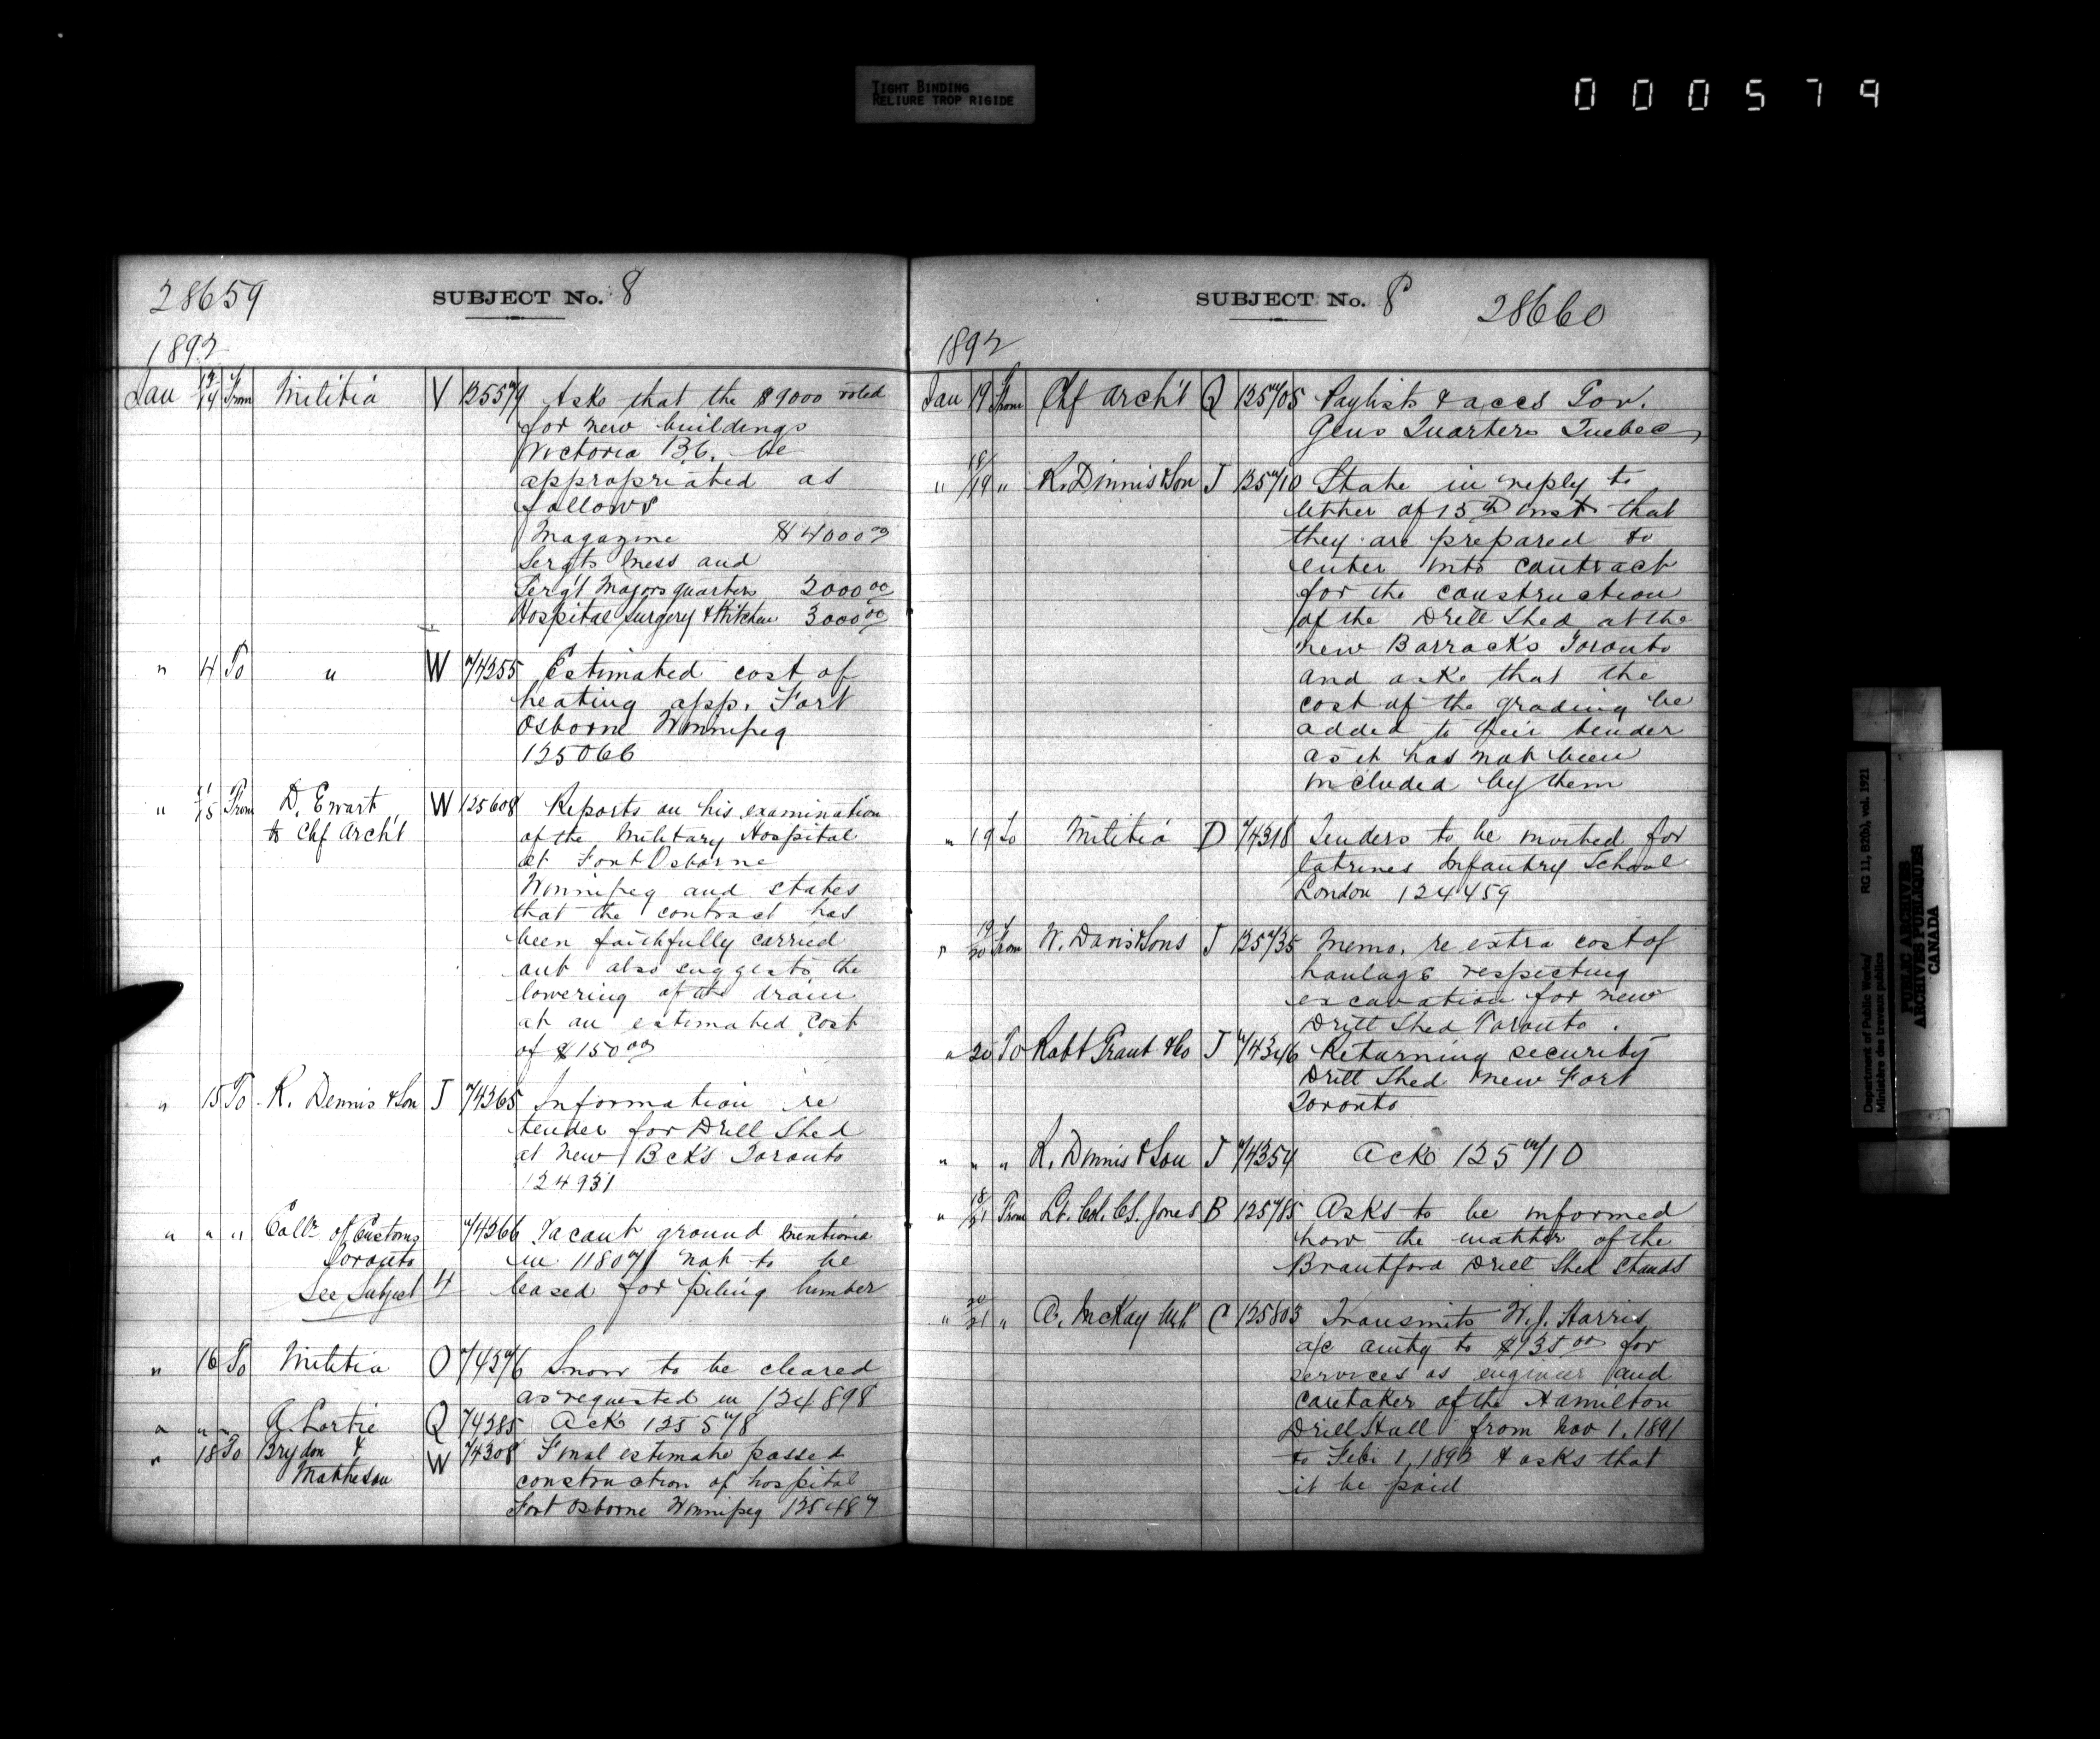 TIGHT BINDING
RELIURE TROP RIGIDE
000579
28659
SUBJECT No. 8
1892
Jan 13/14 From Militia V 125579 Asks that the $9000 voted
for new buildings
Victoria B.C. be
appropriated as
follows
Magazine $4000 00
Sergts Mess and
Serg't Majors quarters 2000 00
Hospital surgery & Kitchen 3000 00
" 4 To " W 74255 Estimated cost of
heating app. Fort
Osborne Winnipeg
125066
" 11/15 From D. Ewart W 125608 Reports on his examination
to Chf Arch't of the Military Hospital
at Fort Osborne
Winnipeg and states
that the contract has
been faithfully carried
out also suggests the
lowering of the drain
at an estimated cost
of $150 00
" 15 To R. Dennis & Son J 74265 Information re
tender for Drill Shed
at New Bcks Toronto
124931
" " " Collr of Customs 74266 Vacant ground mentioned
Toronto in 118071 not to be
See Subject 4 leased for piling lumber
" 16 To Militia O 74276 Snow to be cleared
as requested in 124898
" " " A. Lortie Q 74285 Ack 125578
" 18 To Brydon & W 74308 Final estimate passed
Matheson construction of hospital
Fort Osborne Winnipeg 125487
SUBJECT No. 8
28660
1892
Jan 19 From Chf Arch't Q 125705 Paylists & accs Gov.
Genls Quarters Quebec
" 18/19 " R. Dinnis & Son J 125710 State in reply to
letter of 15th inst that
they are prepared to
enter into contract
for the construction
of the Drill Shed at the
new Barracks Toronto
and asks that the
cost of the grading be
added to their tender
as it has not been
included by them
" 19 To Militia D 74318 Tenders to be invited for
latrines Infantry School
London 124459
" 19/20 From W. Davis & Sons J 125735 Memo. re extra cost of
haulage respecting
excavation for new
Drill Shed Toronto.
" 20 To Robt Grant & Co J 74346 Returning security
Drill Shed New Fort
Toronto
" " " R. Dinnis & Son J 74354 Ack 125710
" 18/21 From Lt. Col. C.S. Jones B 125785 Asks to be informed
how the matter of the
Brantford Drill Shed stands
" 20/21 " A. McKay M.P. C 125803 Transmits W.J. Harris
a/c amtg to $135 00 for
services as engineer and
caretaker of the Hamilton
Drill Hall from Nov 1, 1891
to Feb 1, 1892 & asks that
it be paid
Department of Public Works/
Ministère des travaux publics
RG 11, B2(b), vol. 1921
PUBLIC ARCHIVES
ARCHIVES PUBLIQUES
CANADA